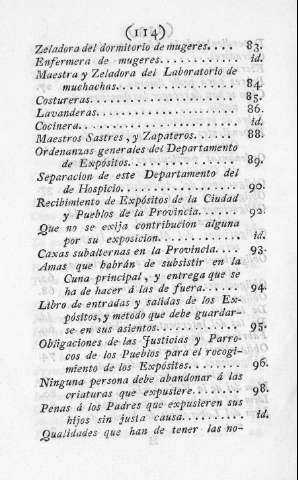 (114)
Zeladora del dormitorio de mugeres.... 83.
Enfermera de mugeres............. id.
Maestra y Zeladora del Laboratorio de
muchachas.................. 84.
Costureras...................... 85.
Lavanderas...................... 86.
Cocinera........................ id.
Maestros Sastres, y Zapateros....... 88.
Ordenanzas generales del Departamento
de Expósitos................. 89.
Separacion de este Departamento del
de Hospicio.................. 90.
Recibimiento de Expósitos de la Ciudad
y Pueblos de la Provincia....... 92.
Que no se exija contribucion alguna
por su exposicion............. id.
Caxas subalternas en la Provincia.... 93.
Amas que habrán de subsistir en la
Cuna principal, y entrega que se
ha de hacer á las de fuera....... 94.
Libro de entradas y salidas de los Ex-
pósitos, y método que debe guardar-
se en sus asientos............. 95.
Obligaciones de las Justicias y Parro-
cos de los Pueblos para el recogi-
miento de los Expósitos........ 96.
Ninguna persona debe abandonar á las
criaturas que expusiere......... 98.
Penas á los Padres que expusieren sus
hijos sin justa causa........... id.
Qualidades que han de tener las no-